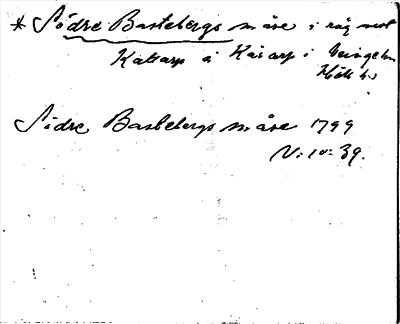 * Södre Bastebergs måse i råg mot
Kattarp å Kårarp i Veinge sn
Hök hd
Södre Bastebergs måse 1799
V: 10: 39.